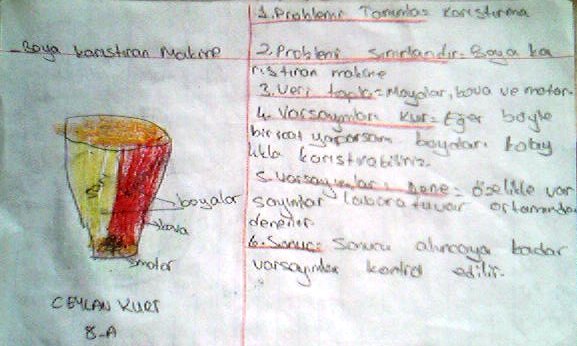 Boya karıştıran Makine
boyalar
kova
motor
CEYLAN KURT
8-A
1. Problemi Tanımla: karıştırma
2. Problemi sınırlandır: Boya ka
rıştıran makine
3. Veri topla: Mayalar, kova ve motor.
4. Varsayımları Kur: Eğer böyle
bir icat yaparsam boyaları kolay
lıkla karıştırabiliriz.
5. Varsayımları dene: özelikle var
sayımlar laboratuvar ortamında
denenir.
6. Sonuç: Sonuca alıncaya kadar
varsayımlar kontrol edilir.